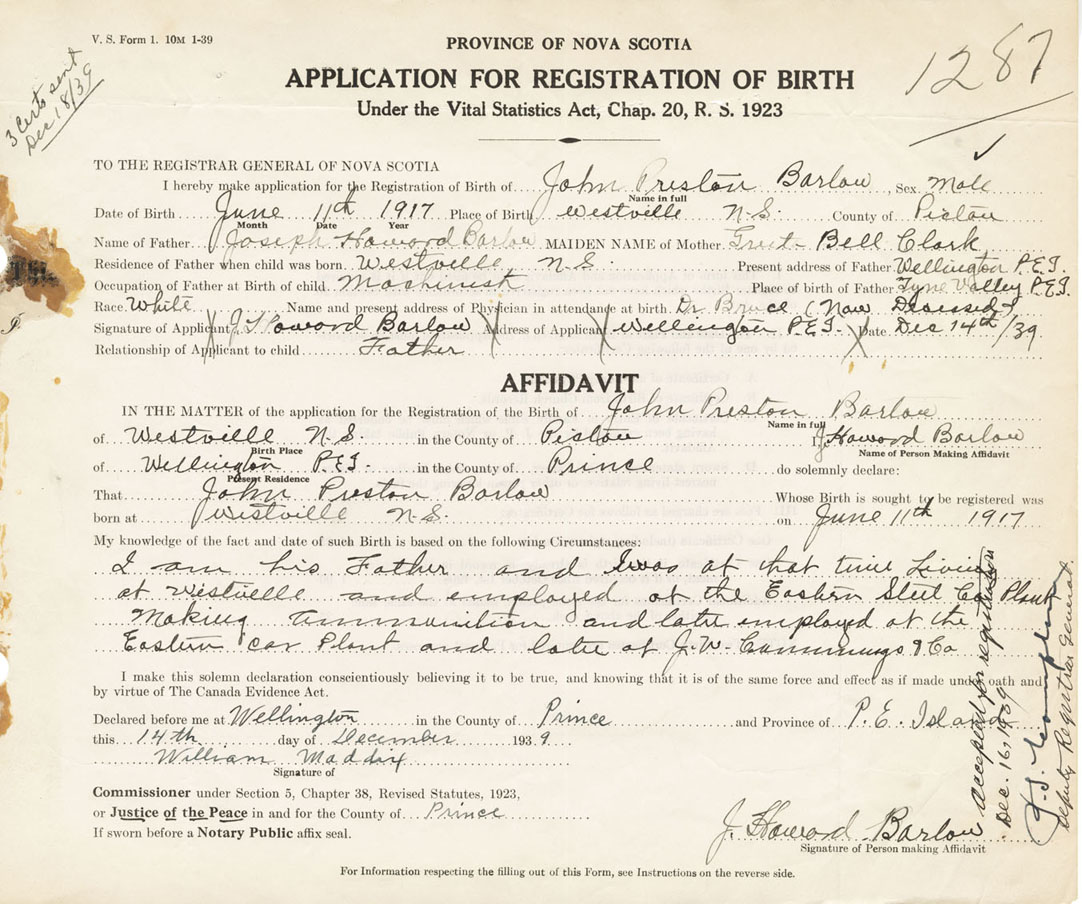 V. S. Form 1. 10M 1-39
3 Certs sent
Dec 18/39
1287
PROVINCE OF NOVA SCOTIA
APPLICATION FOR REGISTRATION OF BIRTH
Under the Vital Statistics Act, Chap. 20, R. S. 1923
TO THE REGISTRAR GENERAL OF NOVA SCOTIA
I hereby make application for the Registration of Birth of John Preston Barlow, Sex Male
Name in full
Date of Birth June 11th 1917 Place of Birth Westville N.S. County of Pictou
Month Date Year
Name of Father Joseph Howard Barlow MAIDEN NAME of Mother Bell Clark
Residence of Father when child was born Westville, N.S. Present address of Father Wellington P.E.I.
Occupation of Father at Birth of child Machinist Place of birth of Father Tyne Valley P.E.I.
Race White Name and present address of Physician in attendance at birth Dr. Bruce (Now Deceased)
Signature of Applicant J. Howard Barlow Address of Applicant Wellington P.E.I. Date Dec 14th/39
Relationship of Applicant to child Father
AFFIDAVIT
IN THE MATTER of the application for the Registration of the Birth of John Preston Barlow
Name in full
of Westville N.S. in the County of Pictou I J. Howard Barlow
Birth Place Name of Person Making Affidavit
of Wellington P.E.I. in the County of Prince do solemnly declare:
Present Residence
That John Preston Barlow Whose Birth is sought to be registered was
born at Westville N.S. on June 11th 1917
My knowledge of the fact and date of such Birth is based on the following Circumstances:
I am his Father and I was at that time Living
at Westville and employed at the Eastern Steel Co Plant
Making Ammunition and late employed at the
Eastern Car Plant and late at J.W. Cummings & Co
I make this solemn declaration conscientiously believing it to be true, and knowing that it is of the same force and effect as if made under oath and
by virtue of The Canada Evidence Act.
Declared before me at Wellington in the County of Prince and Province of P.E. Island
this 14th day of December 1939
William Maddix
Signature of
Commissioner under Section 5, Chapter 38, Revised Statutes, 1923,
or Justice of the Peace in and for the County of Prince
If sworn before a Notary Public affix seal.
J. Howard Barlow
Signature of Person making Affidavit
For Information respecting the filling out of this Form, see Instructions on the reverse side.
Accepted for registration
Dec. 16, 1939
Deputy Registrar General